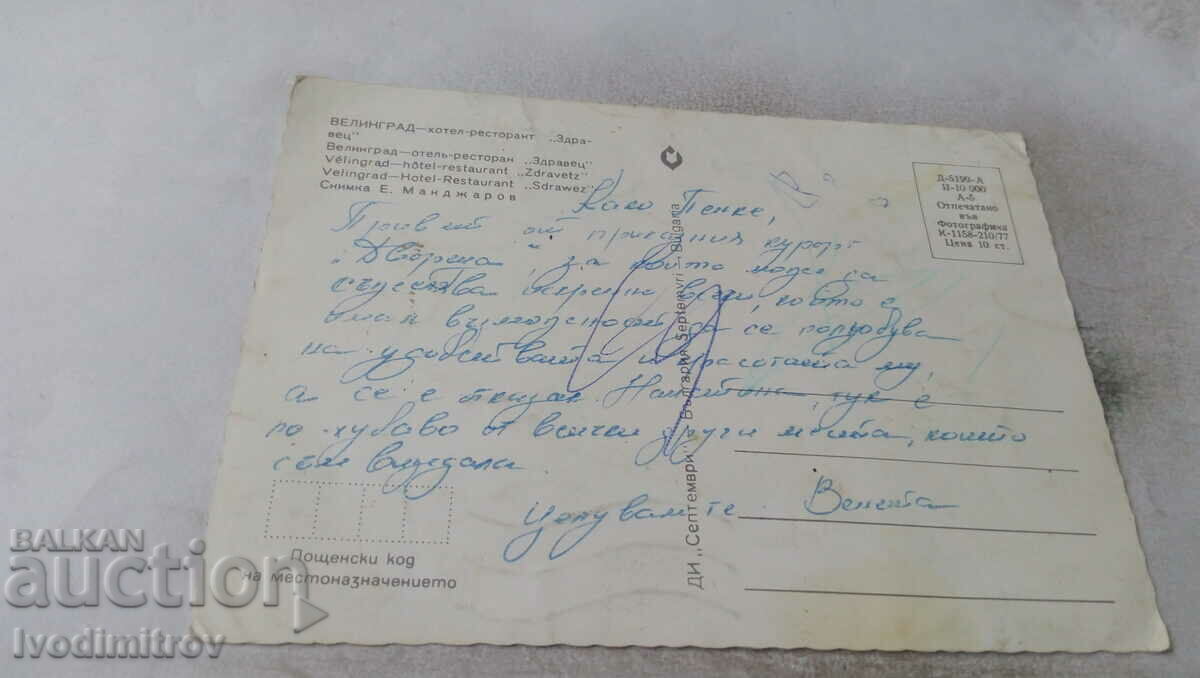 ВЕЛИНГРАД—хотел-ресторант „Здра-
вец"
Велинград—отель-ресторан „Здравец"
Vélingrad—hôtel-restaurant „Zdravetz"
Velingrad—Hotel-Restaurant „Sdrawez"
Снимка Е. Манджаров
Д-5199-А
II-10 000
А-5
Отпечатано
във
Фотографика
К-1158-210/77
Цена 10 ст.
Како Пенке,
Привет от курорт
„Двореца", за който може са
съществва вечи, който е
се получува
на удобствата и красотата му,
а се е тук е
по-хубаво от всички други места, които
съм виждала.
Целувам те Венета
ДИ „Септември" — България Septemvri — Bulgaria
Пощенски код
на местоназначението
BALKAN
auction
Ivodimitrov